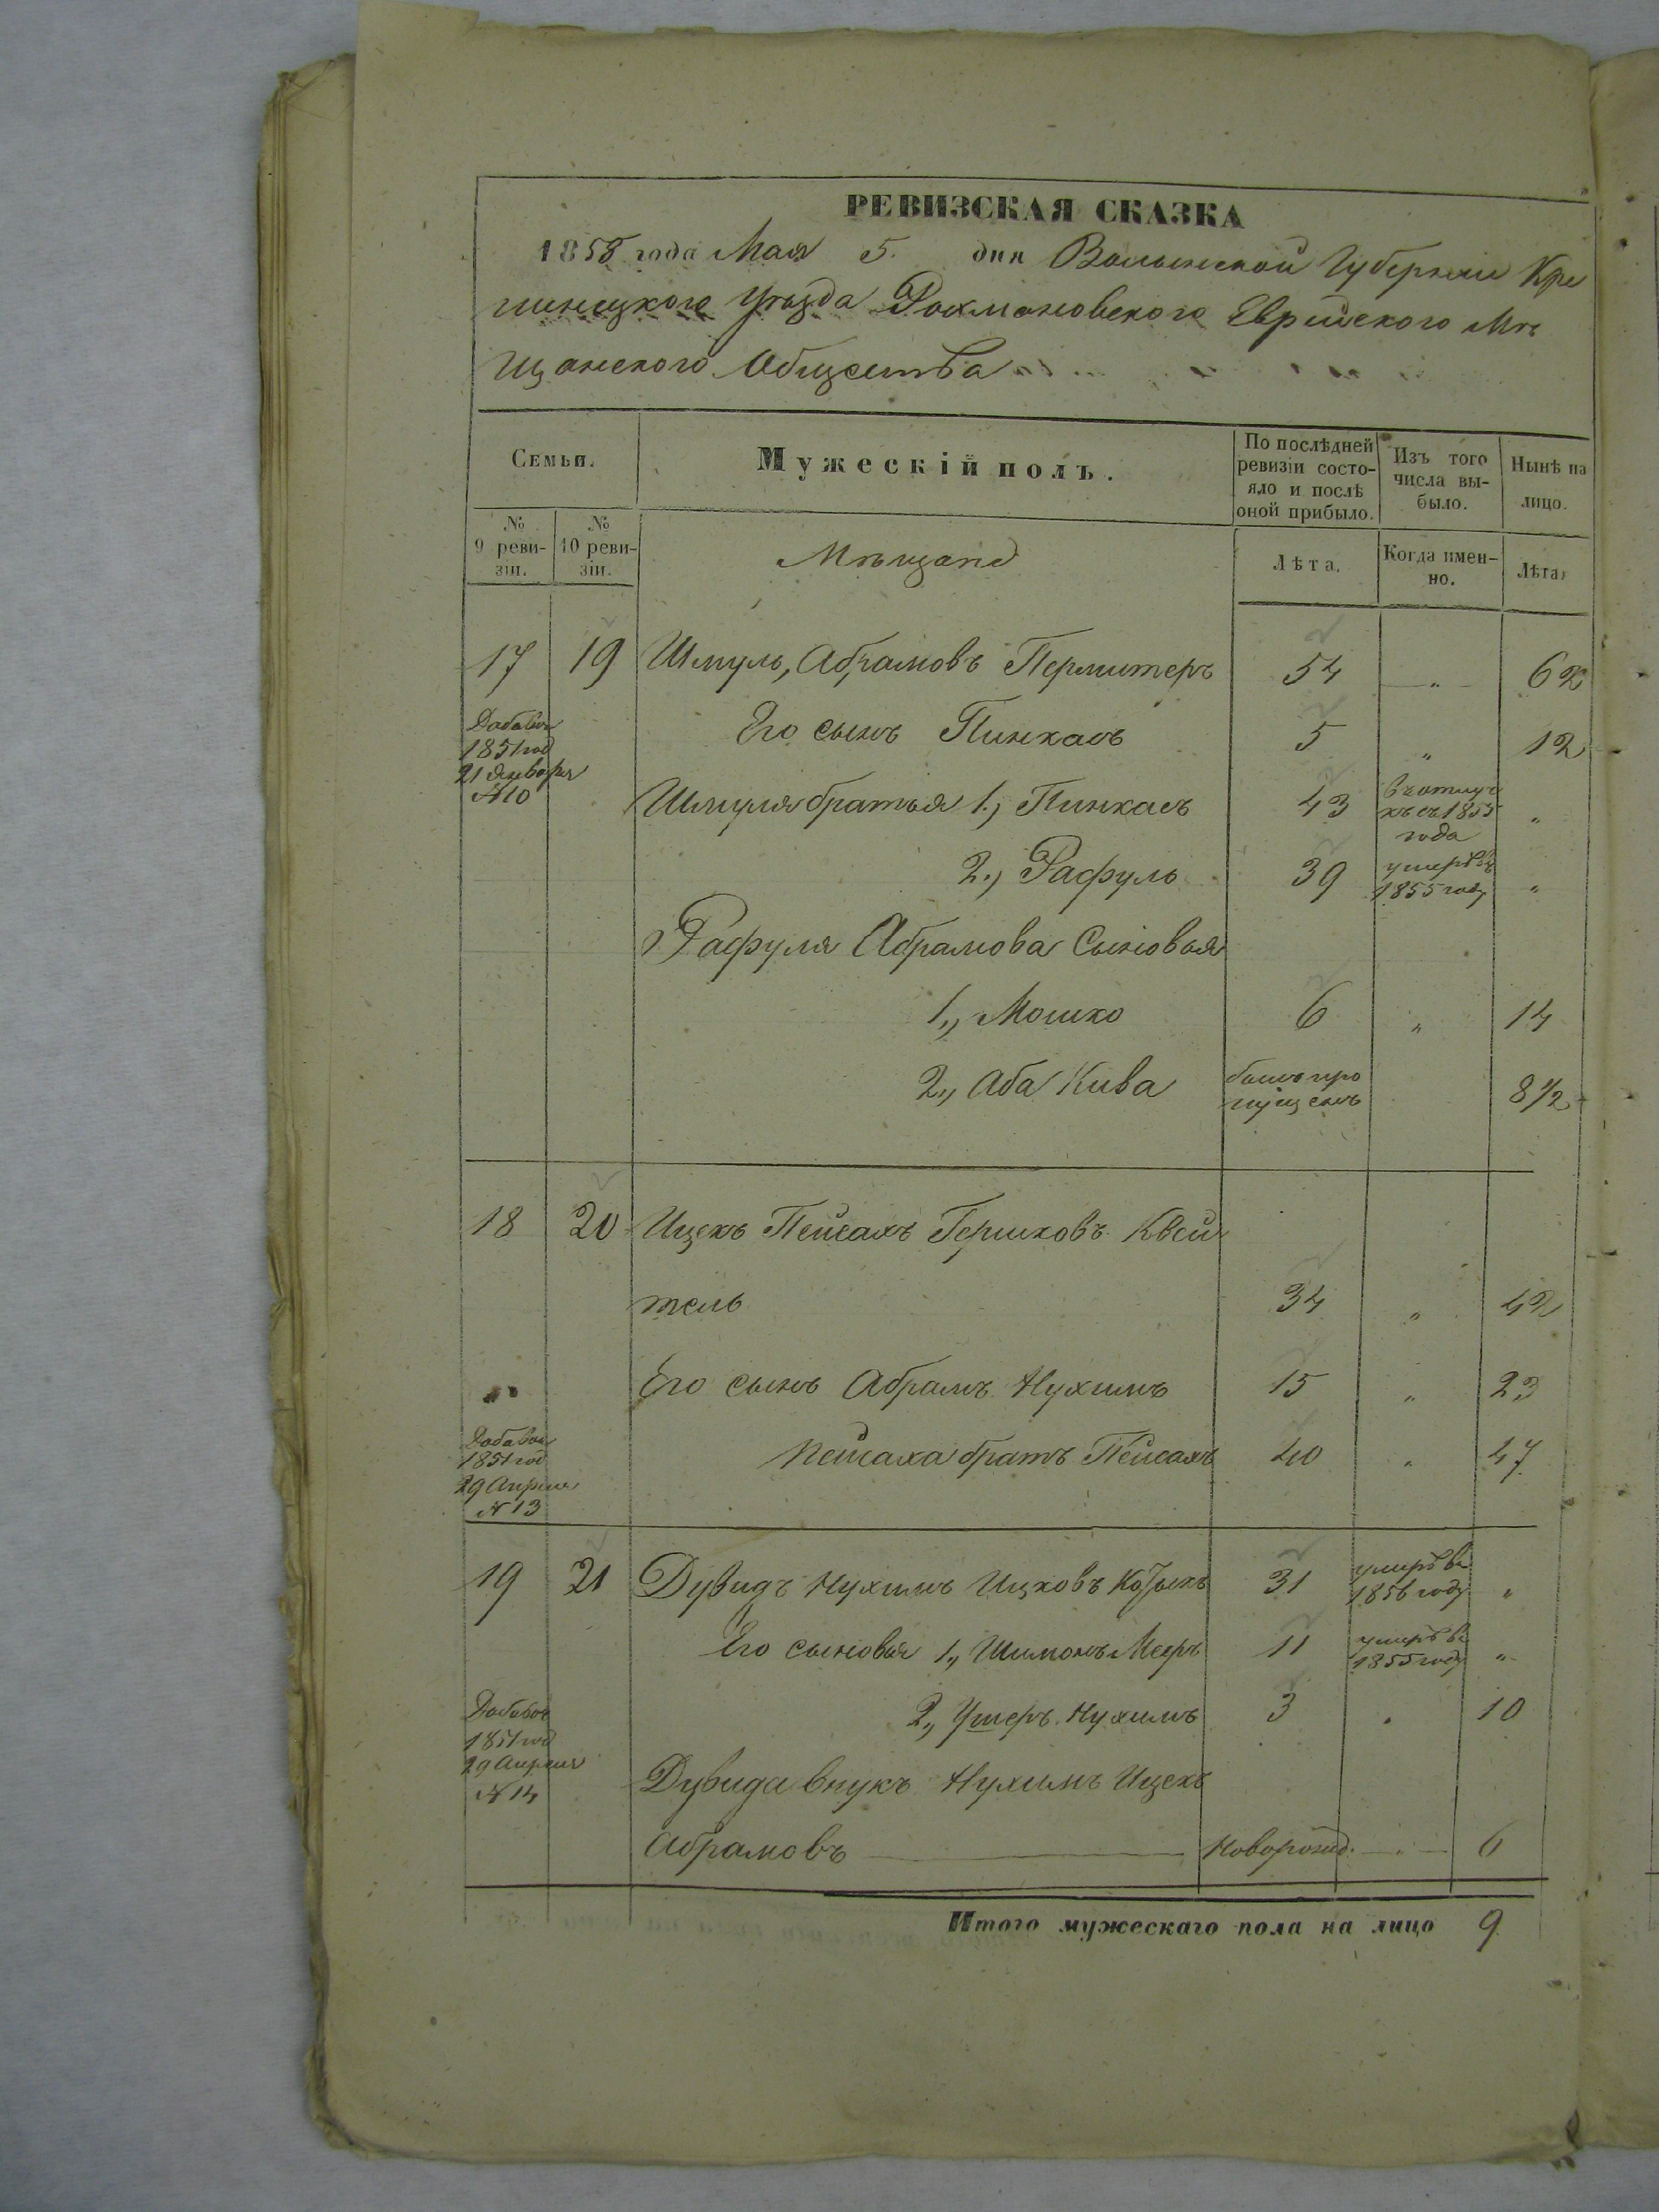 РЕВИЗСКАЯ СКАЗКА
1858 года Мая 5. дня Волынской Губернии Кре
минецкого Уѣзда Рохмановского Еврейского Мѣ
щанского Общества
Семьи.
Мужескій полъ.
По послѣдней ревизіи состо-
яло и послѣ оной прибыло.
Изъ того числа вы-
было.
Нынѣ на лицо.
№ 9 реви-
зіи.
№ 10 реви-
зіи.
Мѣщане
Лѣта.
Когда имен-
но.
Лѣта.
17 19 Шмуль Абрамовъ Перлмитеръ 54 „ 62
Его сынъ Пинкасъ 5 „ 12
Добавоч
1851 год
21 Января
№ 10
Шмуля братья 1., Пинкасъ 43 „
съ 1855
года
2., Рафуль 39 умеръ въ „
1855 году
Рафуля Абрамова Сыновья
1., Мошко 6 „ 14
2., Аба Кива былъ про 8 1/2
пущенъ
18 20 Ицекъ Пейсахъ Гершковъ Квей
тель 34 „ 42
Его сынъ Абрамъ Нухимъ 15 „ 23
Добавоч
1851 год
29 Апреля
№ 13
Пейсаха братъ Пейсахъ 40 „ 47
19 21 Дувидъ Нухимъ Ицковъ 31 умеръ въ „
1856 году
Его сыновья 1., Шимонъ Мееръ 11 умеръ въ „
1855 году
2., Ушеръ Нухимъ 3 „ 10
Добавоч
1851 год
29 Апреля
№ 14
Дувида внукъ Нухимъ Ицекъ
Абрамовъ Новорожд. „ 6
Итого мужескаго пола на лицо 9